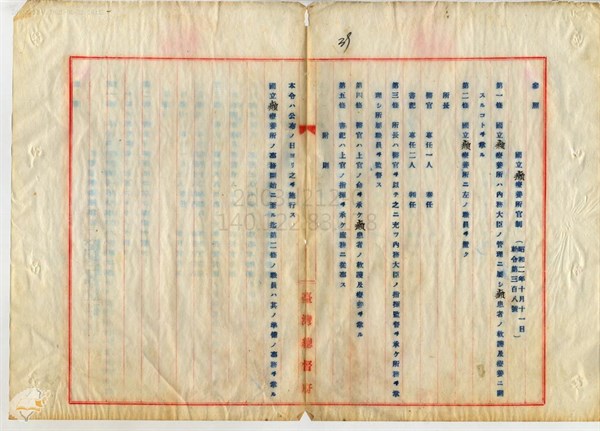 29
参照
國立癩療養所官制 (昭和二年十月十一日勅令第三百八號)
第一條 國立癩療養所ハ内務大臣ノ管理ニ屬シ癩患者ノ救護及療養ニ關
スルコトヲ掌ル
第二條 國立癩療養所ニ左ノ職員ヲ置ク
所長
醫官 專任一人 奏任
書記 專任二人 判任
第三條 所長ハ醫官ヲ以テ之ニ充ツ内務大臣ノ指揮監督ヲ承ケ所務ヲ掌
理シ所屬職員ヲ監督ス
第四條 醫官ハ上官ノ命ヲ承ケ癩患者ノ救護及療養ヲ掌ル
第五條 書記ハ上官ノ指揮ヲ承ケ庶務ニ從事ス
附則
本令ハ公布ノ日ヨリ之ヲ施行ス
國立癩療養所ノ事務開始ニ至ル迄第二條ノ職員ハ其ノ準備ノ事務ヲ掌ル
臺灣總督府